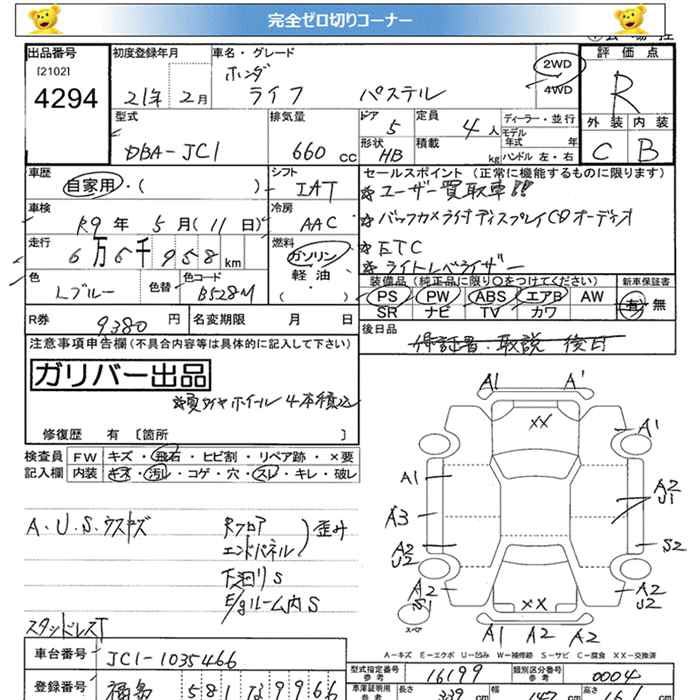 完全ゼロ切りコーナー
出品番号 初度登録年月 車名・グレード 評価点
[2102] ホンダ 2WD
4294 21年 2月 ライフ パステル 4WD R
型式 排気量 ドア 定員 ディーラー・並行 外装 内装
DBA-JC1 660 cc 5 4人 モデル年式 年 C B
形状 HB 積載 kg ハンドル 左・右
車歴 シフト セールスポイント (正常に機能するものに限ります)
自家用・( ) IAT ユーザー買取車!!
車検 R9年 5月(11日) 冷房 AAC バックカメラ付ディスプレイCDオーディオ
走行 6万6千958km 燃料 ガソリン ETC
軽油 ・( ) ライトレベライザー
色 Lブルー 色替 色コード B528M 装備品 (純正品に限り○をつけてください) 新車保証書
PS PW ABS エアB AW 有・無
SR ナビ TV カワ
R券 9380円 名変期限 月 日 後日品
保証書・取説 後日
注意事項申告欄(不具合内容等は具体的に記入して下さい)
ガリバー出品
夏タイヤホイール4本積込
修復歴 有 [箇所 ]
検査員 FW キズ・飛石・ヒビ割・リペア跡・×要
記入欄 内装 キズ・汚レ・コゲ・穴・スレ・キレ・破レ
A.U.S.ウスキズ Rフロア
エンドパネル 歪み
下廻りS
E/gルーム内S
スタッドレスT
A1 A'
XX
A1
A1 A2
U1
A3
A2 S2
U2
A2 A2
S1 U2
XX
スペア
A1 A2 A2
A-キズ E-エクボ U-凹み W-補修跡 S-サビ C-腐食 XX-交換済
車台番号 JC1-1035466 型式指定番号 16199 類別区分番号 0004
登録番号 福島 581 な 9966 参考 参考
車庫証明用 長さ 339 cm 幅 147 cm 高さ cm